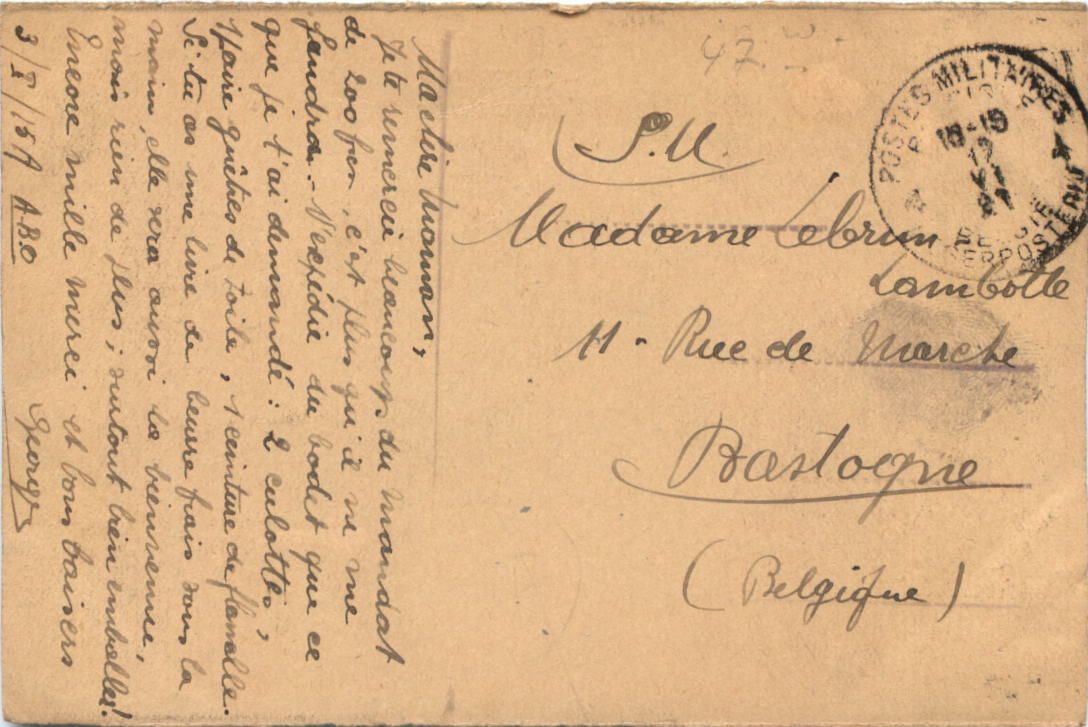 Ma chère Maman,
Je te remercie beaucoup du mandat
de 200 fr, c'est plus qu'il ne me
faudra. - N'expédie du bodet que ce
que je t'ai demandé : 2 culottes,
1 paire guêtres de toile, 1 ceinture de flanelle.
Si tu as une livre de beurre frais sous la
main, elle sera aussi la bienvenue,
mais rien de plus ; surtout bien emballer !
Encore mille merci et bons baisers
3/X/15 A A.B.O Georges
47
S.M.
Madame Lebrun
Lambotte
11 - Rue de Marche
Bastogne
(Belgique)
POSTES MILITAIRES
BELGIE
LEGERPOSTERIJ